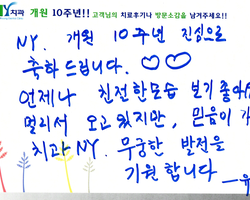 NY치과 개원 10주년!! 고객님의 치료후기나 방문소감을 남겨주세요!!
NY. 개원 10주년 진심으로
축하드립니다. ♡♡
언제나 친절한모습 보기 좋아
멀리서 오고있지만, 믿음이 가
치과 NY. 무궁한 발전을
기원합니다